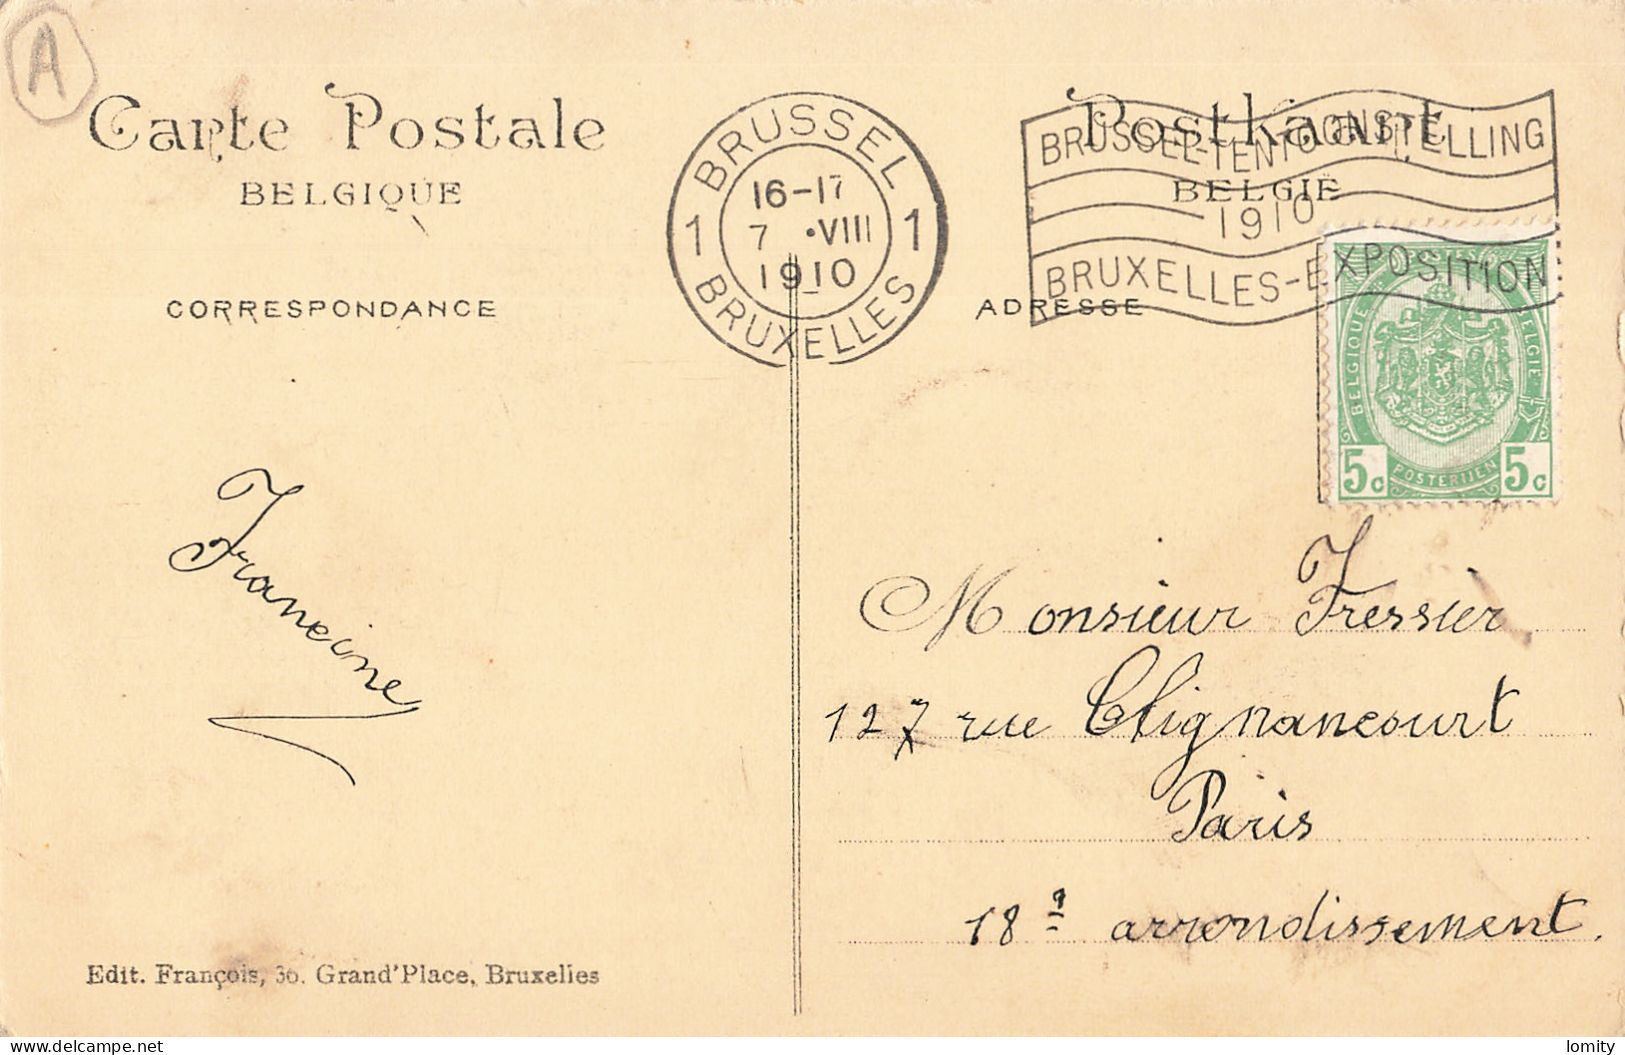 A
Carte Postale
BELGIQUE
CORRESPONDANCE
Francine
Edit. François, 30. Grand'Place, Bruxelles
BRUSSEL
1 16-17 1
7 •VIII
1910
BRUXELLES
Postkaart
BELGIË
BRUSSEL-TENTOONSTELLING
1910
BRUXELLES-EXPOSITION
ADRESSE
BELGIQUE BELGIE
5c POSTERIJEN 5c
Monsieur Fressier
127 rue Clignancourt
Paris
18e arrondissement.
www.delcampe.net
lomity